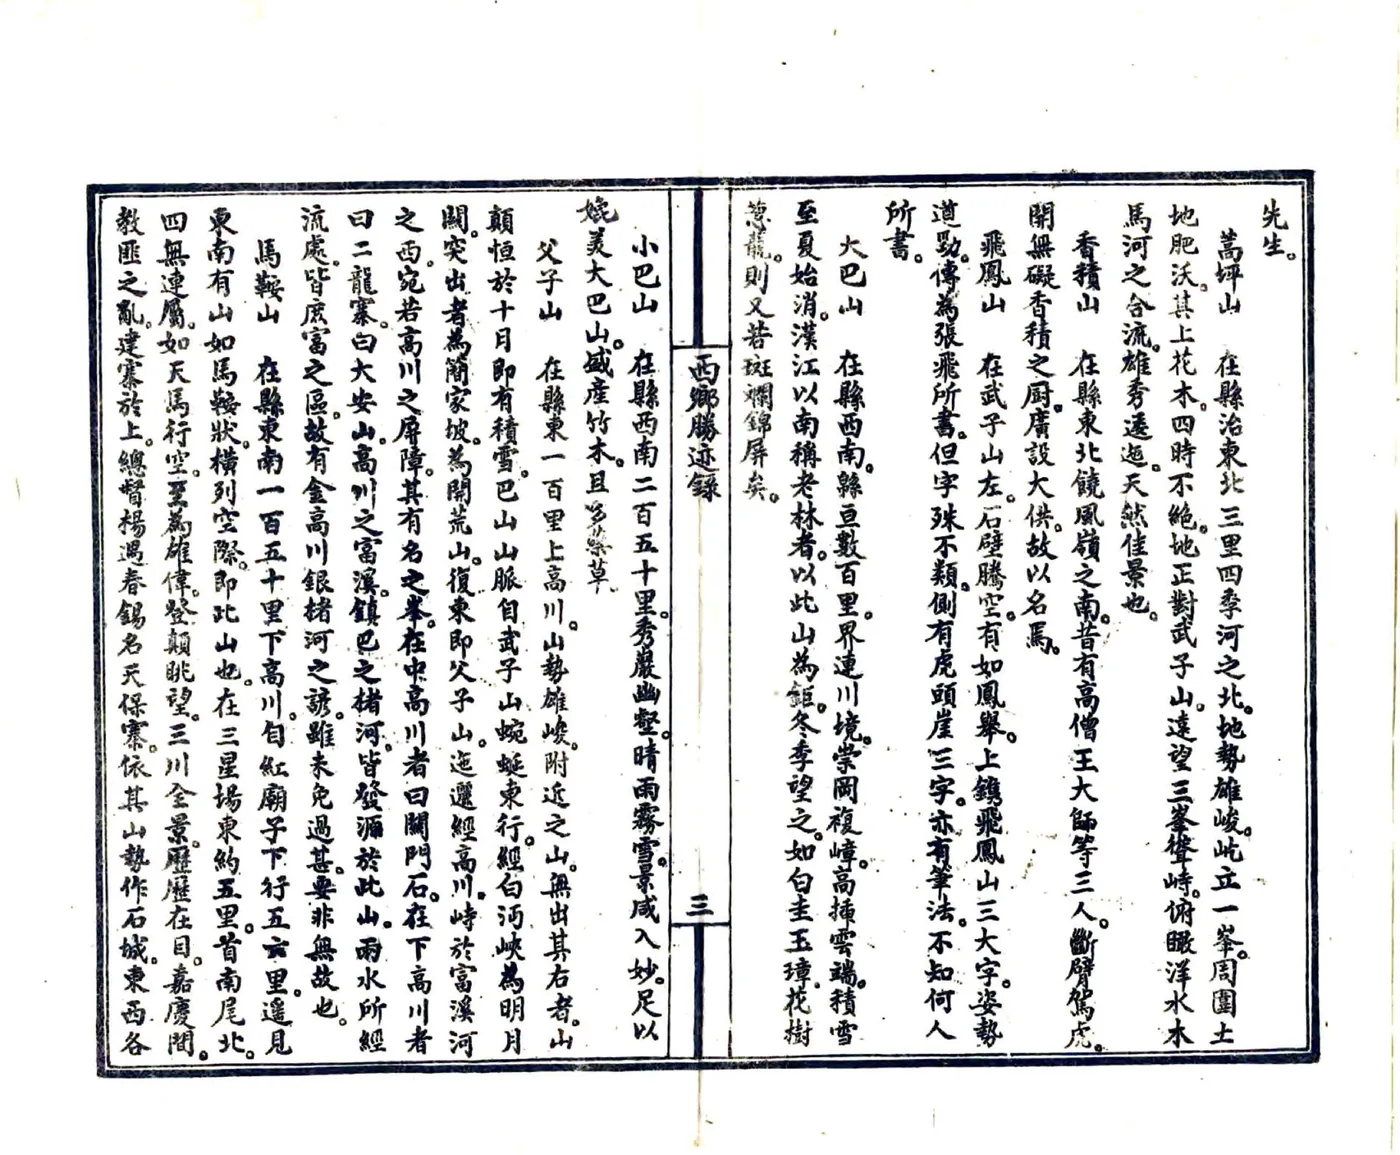 先生。
嵩坪山　在縣治東北三里四季河之北。地勢雄峻。屹立一峯。周圍土
地肥沃。其上花木。四時不絶。地正對武子山。遠望三峯聳峙。俯瞰洋水木
馬河之合流。雄秀逶迤。天然佳景也。
香積山　在縣東北饒風嶺之南。昔有高僧王大師等三人。斷臂駕虎。
開無礙香積之厨。廣設大供。故以名焉。
飛鳳山　在武子山左。石壁騰空。有如鳳舉。上鐫飛鳳山三大字。姿勢
遒勁。傳為張飛所書。但字殊不類。側有虎頭崖三字。亦有筆法。不知何人
所書。
大巴山　在縣西南。緜亘數百里。界連川境。崇岡複嶂。高揷雲端。積雪
至夏始消。漢江以南稱老林者。以此山為鉅。冬季望之。如白圭玉璋。花樹
葱蘢。則又若斑斕錦屏矣。
西鄉勝迹錄
三
小巴山　在縣西南二百五十里。秀巖幽壑。晴雨霧雪。景咸入妙。足以
媲美大巴山。盛產竹木。且多藥草。
父子山　在縣東一百里上高川。山勢雄峻。附近之山。無出其右者。山
顛恒於十月即有積雪。巴山山脈自武子山蜿蜒東行。經白沔峽為明月
關。突出者為簡家坡。為開荒山。復東即父子山。迤邐經高川。峙於富溪河
之西。宛若高川之屏障。其有名之峯。在中高川者曰關門石。在下高川者
曰二龍寨。曰大安山。高川之富溪。鎮巴之楮河。皆發源於此山。兩水所經
流處。皆庶富之區。故有金高川銀楮河之諺。雖未免過甚。要非無故也。
馬鞍山　在縣東南一百五十里下高川。自紅廟子下行五六里。遥見
東南有山如馬鞍狀。橫列空際。即此山也。在三星場東約五里。首南尾北。
四無連屬。如天馬行空。至為雄偉。登顛眺望。三川全景。歷歷在目。嘉慶間。
教匪之亂。建寨於上。總督楊遇春錫名天保寨。依其山勢作石城。東西各